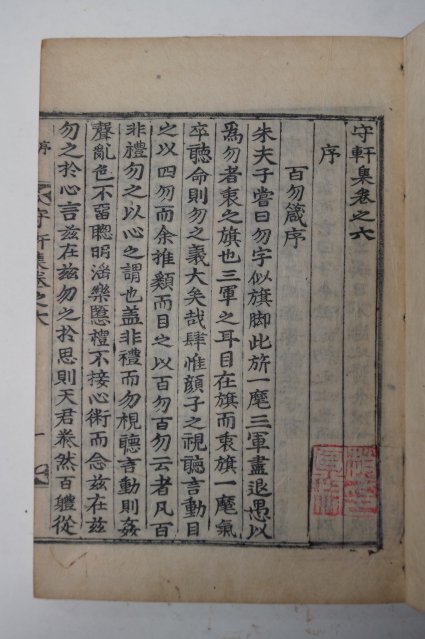 守軒集卷之六
序
百勿箴序
朱夫子嘗曰勿字似旗脚此旂一麾三軍盡退愚以
爲勿者衷之旗也三軍之耳目在旗而衷旗一麾氣
卒聽命則勿之義大矣哉肆惟顔子之視聽言動目
之以四勿而余推類而目之以百勿百勿云者凡百
非禮勿之以心之謂也盖非禮而勿視聽言動則姦
聲亂色不留聰明滛樂慝禮不接心術而念兹在兹
勿之於心言兹在兹勿之於思則天君泰然百軆從
序
守軒集卷之六
一